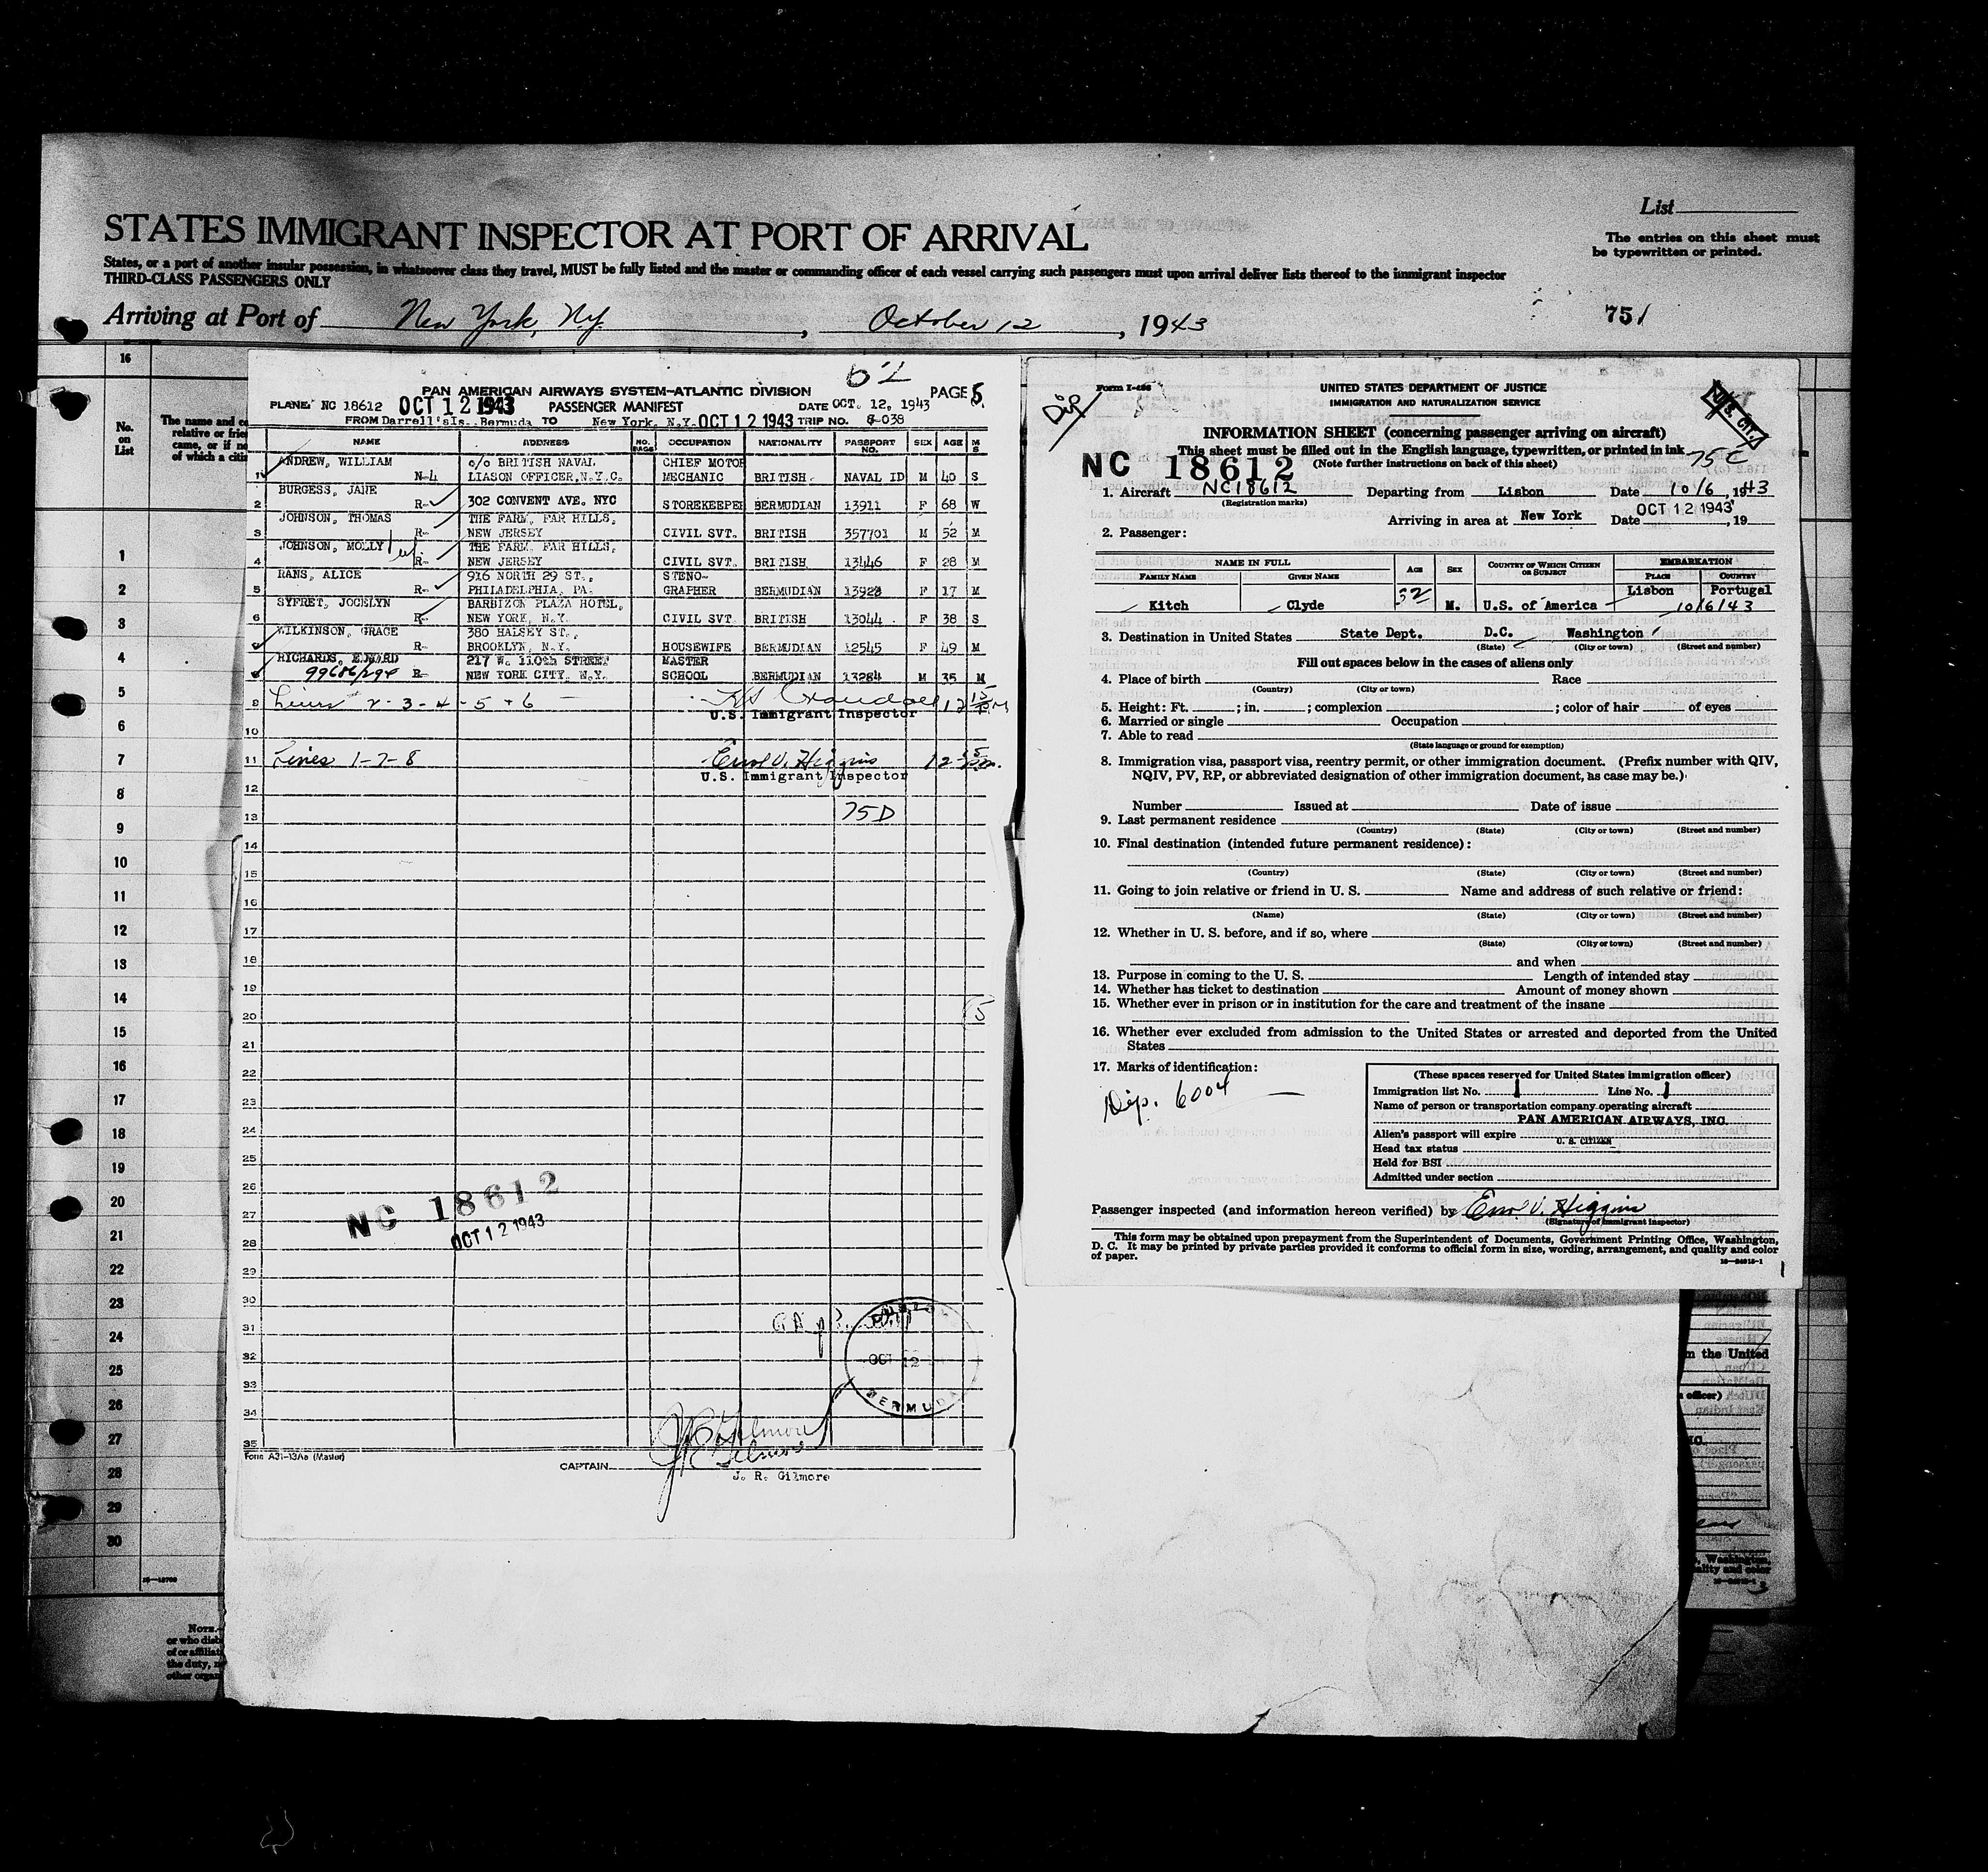 List
STATES IMMIGRANT INSPECTOR AT PORT OF ARRIVAL
The entries on this sheet must
be typewritten or printed.
States, or a port of another insular possession, in whatsoever class they travel, MUST be fully listed and the master or commanding officer of each vessel carrying such passengers must upon arrival deliver lists thereof to the immigrant inspector
THIRD-CLASS PASSENGERS ONLY
Arriving at Port of New York, N.Y. , October 12 , 1943
751
16
No.
on
List
The name and co
relative or frie
came, or if no
of which a citi
1
2
3
4
5
6
7
8
9
10
11
12
13
14
15
16
17
18
19
20
21
22
23
24
25
26
27
28
29
30
NOTE.—
or who disb
of or affiliat
the duty,
other organ
PAN AMERICAN AIRWAYS SYSTEM—ATLANTIC DIVISION PAGE 5
PLANE NC 18612 OCT 12 1943 PASSENGER MANIFEST DATE OCT. 12, 1943
FROM Darrell's Is., Bermuda TO New York, N.Y. OCT 12 1943 TRIP NO. 8-038
NAME ADDRESS NO. PAGS OCCUPATION NATIONALITY PASSPORT NO. SEX AGE M S
1 ANDREW, WILLIAM N-4 c/o BRITISH NAVAL LIASON OFFICER, N.Y.C. CHIEF MOTOR MECHANIC BRITISH NAVAL ID M 40 S
2 BURGESS, JANE R- 302 CONVENT AVE. NYC STOREKEEPER BERMUDIAN 13911 F 68 W
3 JOHNSON, THOMAS R- THE FARM, FAR HILLS, NEW JERSEY CIVIL SVT. BRITISH 357701 M 52 M
4 JOHNSON, MOLLY R- THE FARM, FAR HILLS, NEW JERSEY CIVIL SVT. BRITISH 13446 F 28 M
5 RANS, ALICE R- 916 NORTH 29 ST., PHILADELPHIA, PA. STENO-GRAPHER BERMUDIAN 13928 F 17 M
6 SYFRET, JOCELYN R- BARBIZON PLAZA HOTEL, NEW YORK, N.Y. CIVIL SVT BRITISH 13044 F 38 S
WILKINSON, GRACE R- 380 HALSEY ST., BROOKLYN, N.Y. HOUSEWIFE BERMUDIAN 12545 F 49 M
RICHARDS, EDWARD 99686/294 R- 217 W. 110th STREET NEW YORK CITY, N.Y. MASTER SCHOOL BERMUDIAN 13284 M 35 M
9 Lines 2-3-4-5+6
U.S. Immigrant Inspector
10
11 Lines 1-7-8 Errol V. Higgins
U.S. Immigrant Inspector
12
13 75D
14
15
16
17
18
19
20
21
22
23
24
25
26
27
28
29
30
31
32
33
34
35
5
NC 18612
OCT 12 1943
OCT 12
BERMUDA
Form A31-13Aa (Master)
CAPTAIN
J. R. Gilmore
Dip
UNITED STATES DEPARTMENT OF JUSTICE
IMMIGRATION AND NATURALIZATION SERVICE
U.S. Cit.
INFORMATION SHEET (concerning passenger arriving on aircraft)
This sheet must be filled out in the English language, typewritten, or printed in ink 75C
NC 18612 (Note further instructions on back of this sheet)
1. Aircraft NC18612 Departing from Lisbon Date 10/6, 1943
(Registration marks)
Arriving in area at New York Date OCT 12 1943, 19
2. Passenger:
NAME IN FULL AGE SEX COUNTRY OF WHICH CITIZEN OR SUBJECT EMBARKATION
FAMILY NAME GIVEN NAME PLACE COUNTRY
Kitch Clyde 32 M. U.S. of America Lisbon Portugal
10/6/43
3. Destination in United States State Dept. D.C. Washington
(State) (City or town) (Street and number)
Fill out spaces below in the cases of aliens only
4. Place of birth Race
(Country) (City or town)
5. Height: Ft. ; in. ; complexion ; color of hair of eyes
6. Married or single Occupation
7. Able to read
(State language or ground for exemption)
8. Immigration visa, passport visa, reentry permit, or other immigration document. (Prefix number with QIV,
NQIV, PV, RP, or abbreviated designation of other immigration document, as case may be.)
Number Issued at Date of issue
9. Last permanent residence
(Country) (State) (City or town) (Street and number)
10. Final destination (intended future permanent residence):
(Country) (State) (City or town) (Street and number)
11. Going to join relative or friend in U. S. Name and address of such relative or friend:
(Name) (State) (City or town) (Street and number)
12. Whether in U. S. before, and if so, where
(State) (City or town) (Street and number)
and when
13. Purpose in coming to the U. S. Length of intended stay
14. Whether has ticket to destination Amount of money shown
15. Whether ever in prison or in institution for the care and treatment of the insane
16. Whether ever excluded from admission to the United States or arrested and deported from the United
States
17. Marks of identification:
Dip. 6004
(These spaces reserved for United States immigration officer)
Immigration list No. 1 Line No. 1
Name of person or transportation company operating aircraft
PAN AMERICAN AIRWAYS, INC.
Alien's passport will expire
U. S. CITIZEN
Head tax status
Held for BSI
Admitted under section
Passenger inspected (and information hereon verified) by Errol V. Higgins
(Signature of immigrant inspector)
This form may be obtained upon prepayment from the Superintendent of Documents, Government Printing Office, Washington,
D. C. It may be printed by private parties provided it conforms to official form in size, wording, arrangement, and quality and color
of paper.
1
m the United
officer)